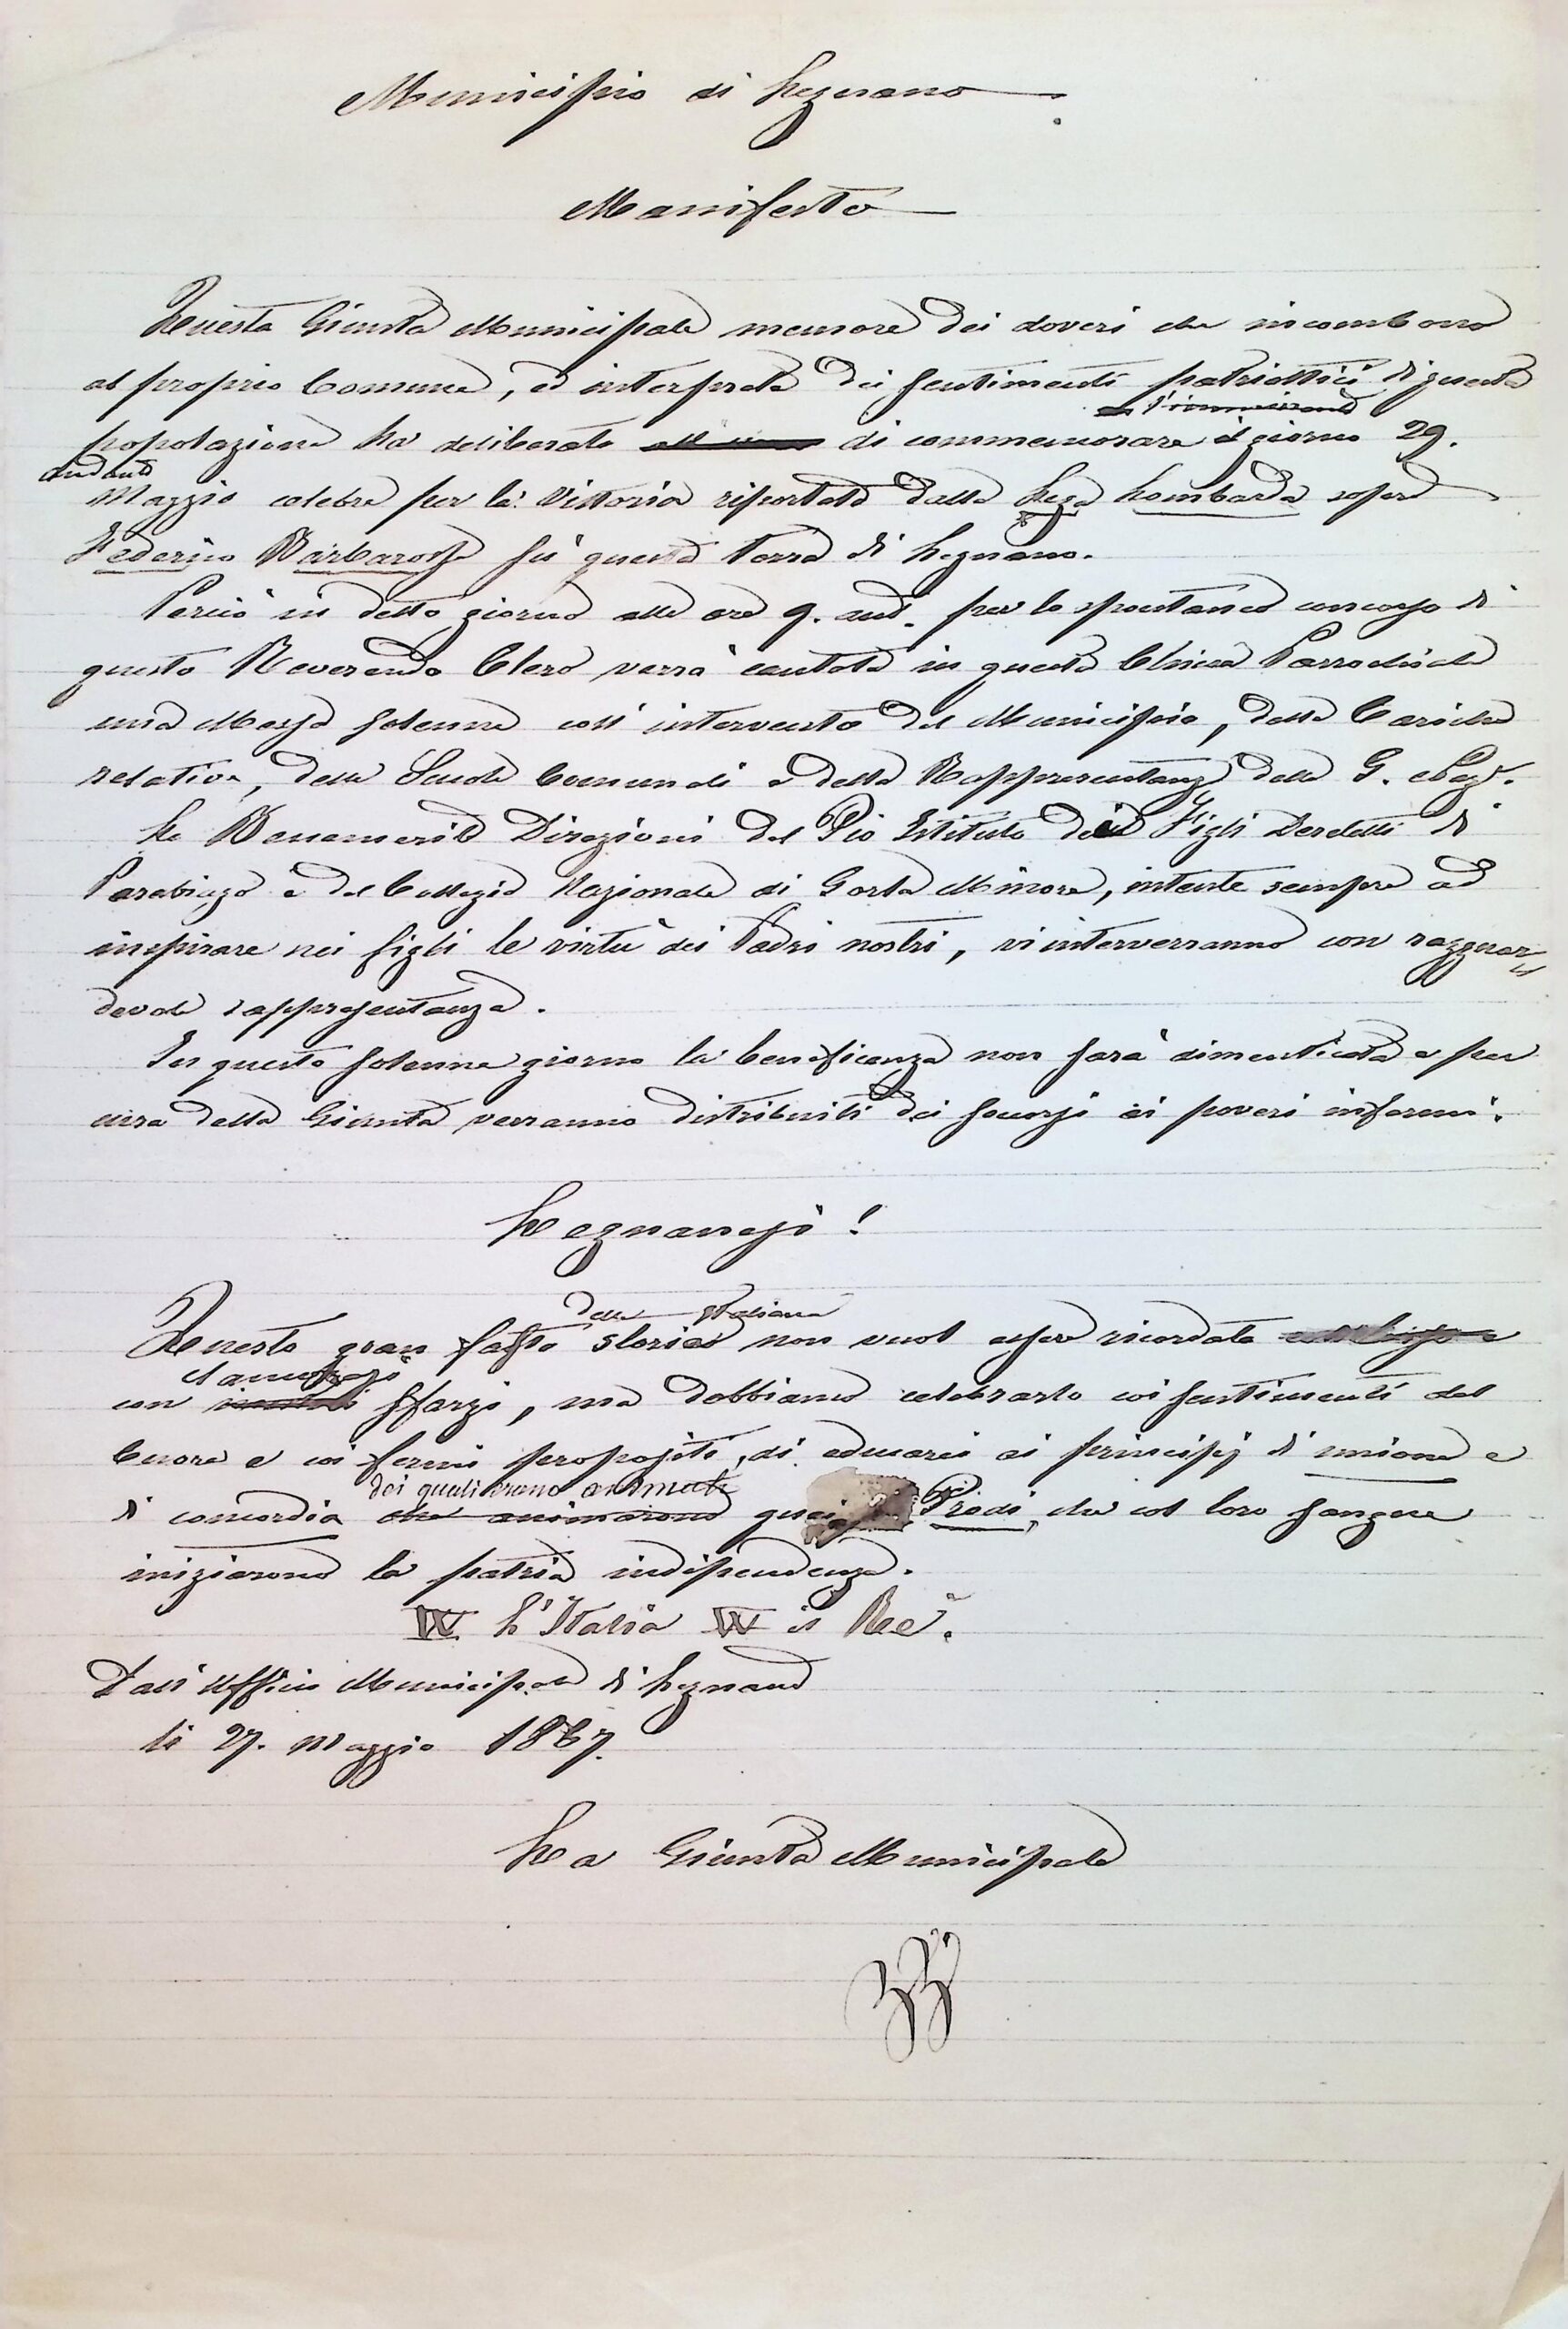 Municipio di Legnano
Manifesto
Questa Giunta Municipale memore dei doveri che incombono
al proprio Comune, ed interprete dei sentimenti patriottici di questa
popolazione ha deliberato di commemorare il giorno 29.
andante
Maggio celebre per la Vittoria riportata dalla Lega Lombarda sopra
Federico Barbarossa su questa Terra di Legnano.
Perciò in detto giorno alle ore 9. ant. per lo spontaneo concorso di
questo Reverendo Clero verrà cantata in questa Chiesa Parrochiale
una Messa solenne coll'intervento del Municipio, delle Cariche
relative, delle Scuole Comunali e della Rappresentanza della G. Naz.
Le Benemerite Direzioni del Pio Istituto dei Figli Derelitti di
Parabiago e del Collegio Nazionale di Gorla Minore, intente sempre ad
inspirare nei figli le virtù dei Padri nostri, vi interverranno con ragguar=
devole rappresentanza.
In questo solenne giorno la beneficenza non sarà dimenticata e per
cura della Giunta verranno distribuiti dei soccorsi ai poveri infermi.
Legnanesi!
della Italiana
Questo gran fatto storia non vuol essere ricordato
clamorosi
con sfarzi, ma dobbiamo celebrarlo coi sentimenti del
Cuore e coi fermi propositi, di educarci ai principj di unione e
dei quali erano animati
di concordia che animarono quei Prodi, che col loro sangue
iniziarono la patria indipendenza.
W L'Italia W il Re.
Dall'Ufficio Municipale di Legnano
li 27. Maggio 1867.
La Giunta Municipale